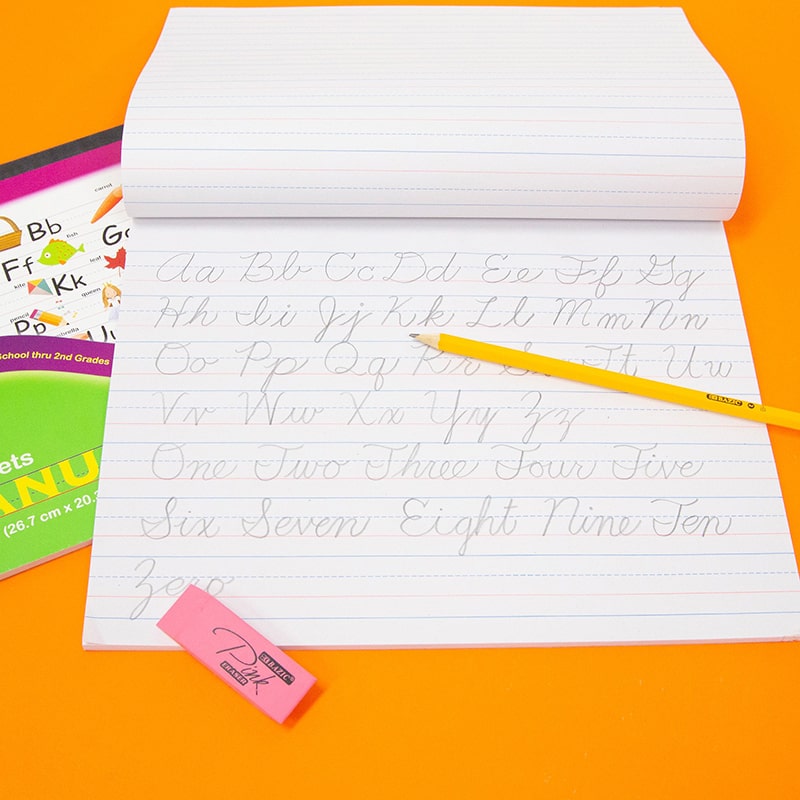 Aa Bb Cc Dd Ee Ff Gg
Hh Ii Jj Kk Ll Mm Nn
Oo Pp Qq Rr Ss Tt Uu
Vv Ww Xx Yy Zz
One Two Three Four Five
Six Seven Eight Nine Ten
Zero
carrot
Bb
fish
Ff
kite
Kk
queen
pencil
Pp
School thru 2nd Grades
(26.7 cm x 20.3
BAZIC
BAZIC
Pink
ERASER